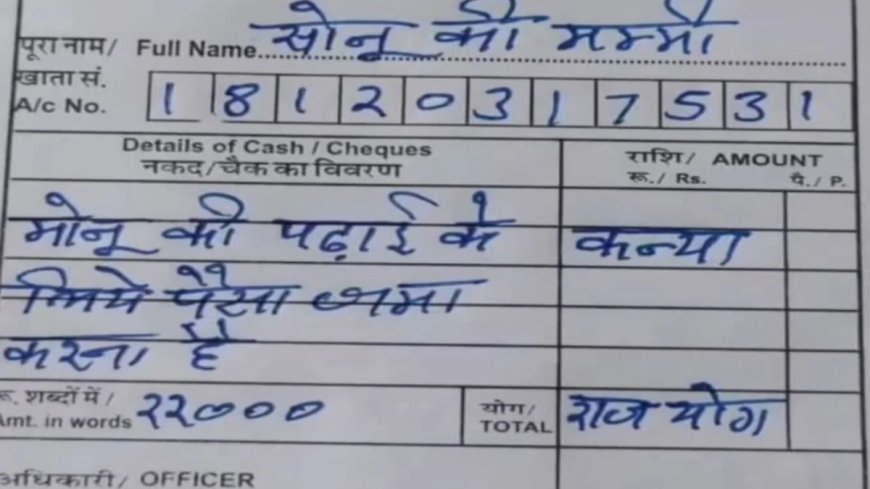 पूरा नाम/ Full Name..... सोनू की मम्मी
खाता सं.
A/c No. 1 8 1 2 0 3 1 7 5 3 1
Details of Cash / Cheques
नकद/चैक का विवरण
राशि/ AMOUNT
रू./ Rs. पै./ P.
मोनू की पढ़ाई के कन्या
लिये पैसा जमा
करना है
रू. शब्दों में/
Amt. in words २२०००
योग/
TOTAL राज योग
अधिकारी/ OFFICER